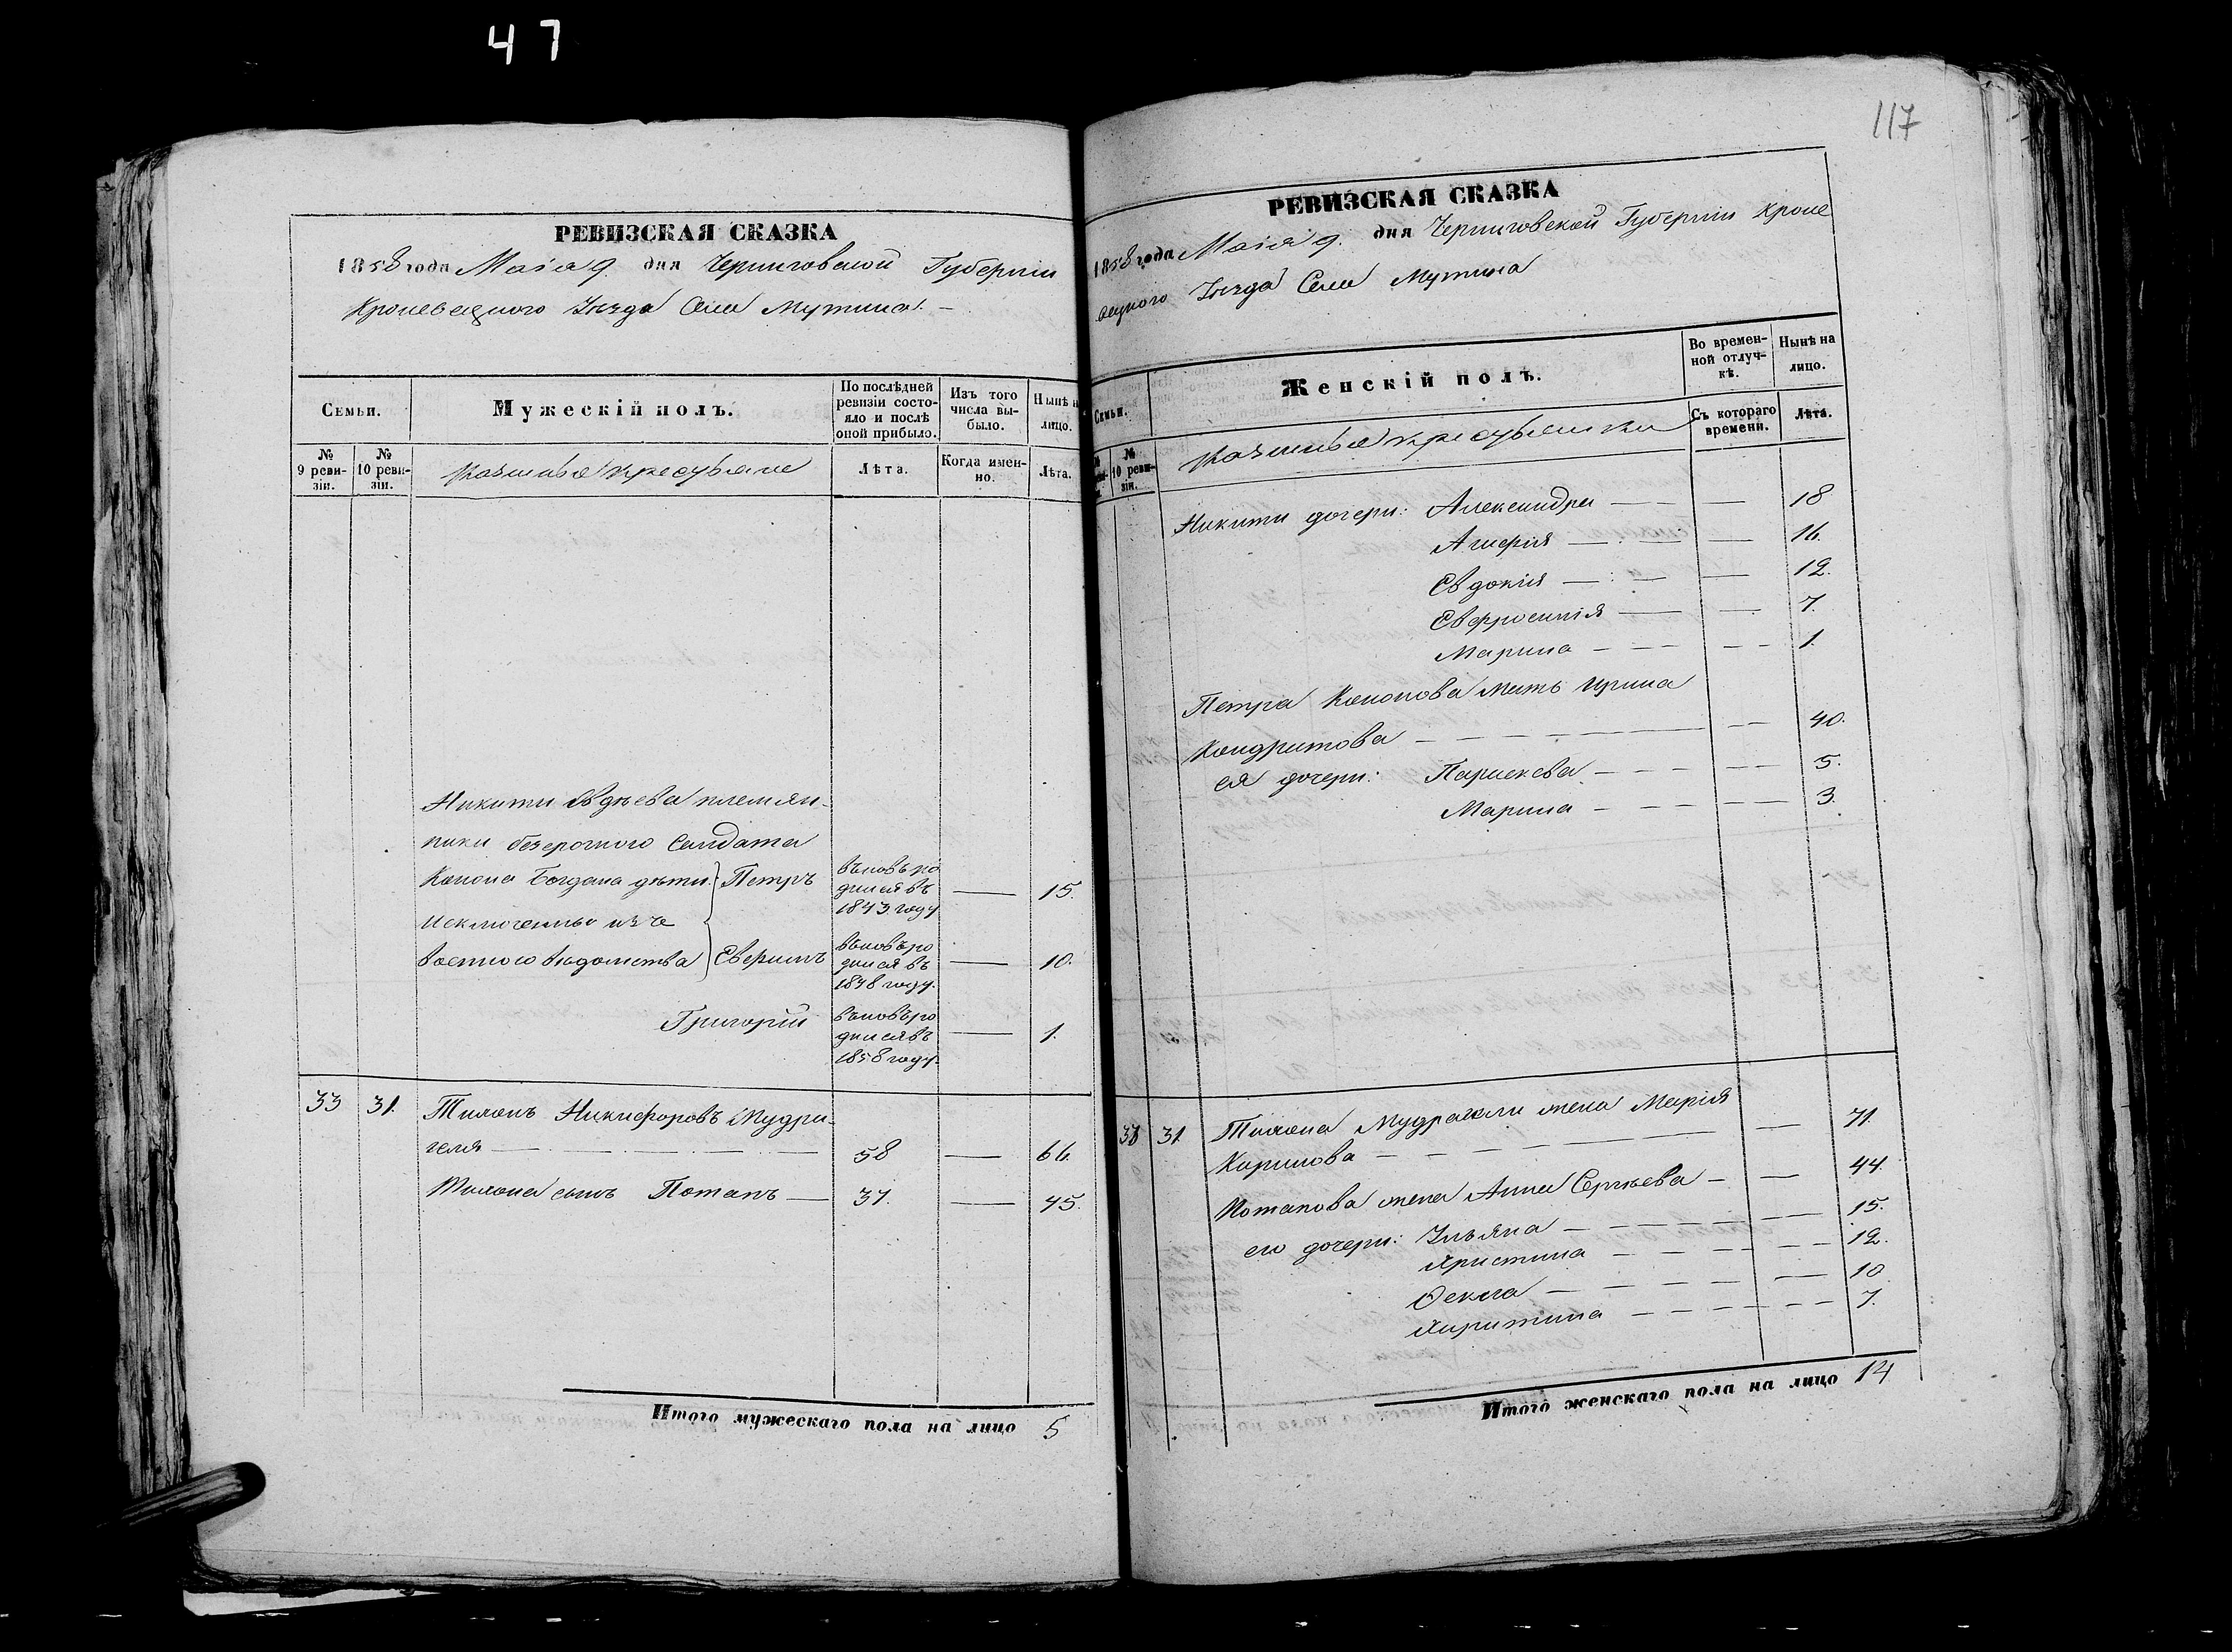 47
117
РЕВИЗСКАЯ СКАЗКА
1858 года Маія 9. дня Черниговской Губерніи
Кролевецкаго Уѣзда Села Мутина. —
Семьи.
Мужескій полъ.
По послѣдней ревизіи состояло и послѣ оной прибыло.
Изъ того числа выбыло.
Нынѣ н лицо.
№ 9 ревизіи.
№ 10 ревизіи.
Казенные крестьяне
Лѣта.
Когда именно.
Лѣта.
Никиты Авдѣева племян-
ники безсрочного Салдата
Конона Богдана дѣти: Петръ
вновь ро
дился въ
1843 году
— 15.
Исключенные изъ
военного вѣдомства Северинъ
вновь ро
дился въ
1848 году.
— 10.
Григорій
вновь ро
дился въ
1858 году.
— 1.
33 31. Тимонъ Никифоровъ Мудра-
геля — 58 — 66.
Тимона сынъ Потапъ — 37. — 45.
Итого мужескаго пола на лицо 5
РЕВИЗСКАЯ СКАЗКА
1858 года Маія 9. дня Черниговской Губерніи Кроле
вецкого Уѣзда Села Мутина
Семьи.
Женскій полъ.
Во временной отлучкѣ.
Нынѣ на лицо.
№ 10 ревизіи.
Казенные крестьянки
Съ котораго времени.
Лѣта.
Никиты дочери: Александра — — 18
Агафія — — 16.
Евдокія — — 12.
Евфросинія — — 7.
Марина — — 1.
Петра Кононова мать Ирина
Кондратова — — 40.
ея дочери: Параскева — — 5.
Марина — — 3.
33 31 Тимона Мудрагели жена Марія
Кирилова — — 71.
Потапова жена Анна Сергѣева — — 44.
его дочери: Ульяна — — 15.
Христина — — 12.
Ѳекла — — 10
Харитина — — 7.
Итого женскаго пола на лицо 14